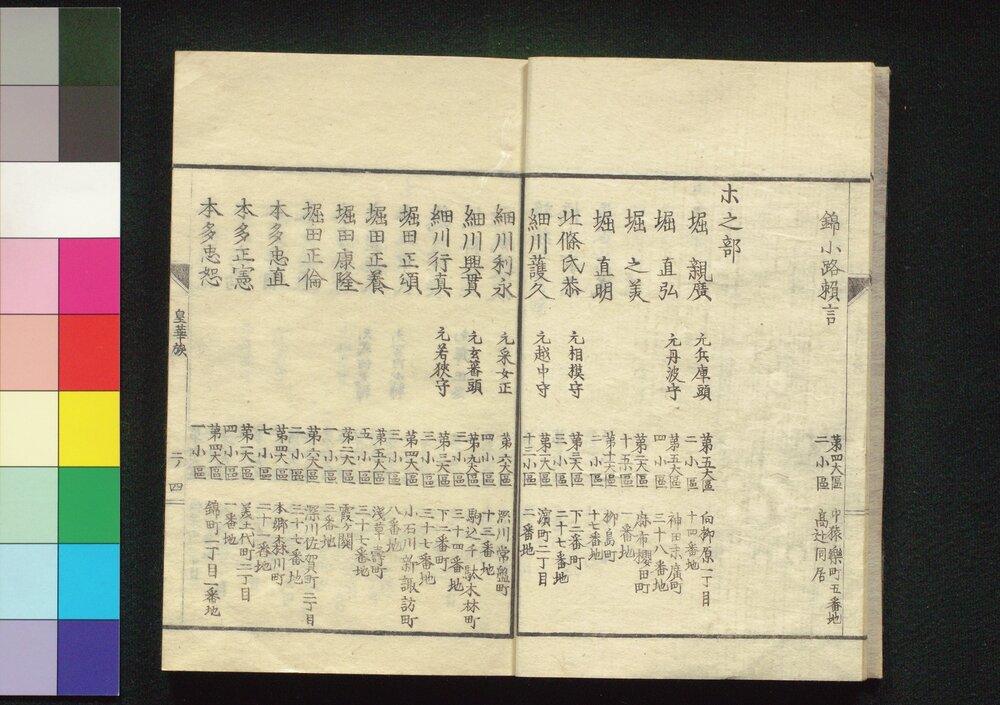 錦小路頼言 第四大區二小區 中猿樂町五番地 高辻同居
ホ之部
堀 親廣 元兵庫頭 第五大區二小區 向柳原一丁目十四番地
堀 直弘 元丹波守 第五大區四小區 神田末廣町三十八番地
堀 之美 第二大區十五小區 麻布櫻田町一番地
堀 直明 第十一大區二小區 柳島町十七番地
北條氏恭 元相摸守 第三大區三小區 下二番町二十七番地
細川護久 元越中守 第一大區十三小區 濱町二丁目二番地
細川利永 元采女正 第六大區四小區 深川常盤町十三番地
細川興貫 元玄蕃頭 第九大區三小區 駒込千駄木林町三十四番地
細川行真 元若狹守 第三大區三小區 下二番町三十七番地
堀田正頌 第四大區三小區 小石川新諏訪町八番地
堀田正養 第五大區五小區 淺草壽町三十七番地
堀田康隆 第二大區一小區 霞ヶ關三番地
堀田正倫 第六大區二小區 深川佐賀町二丁目三十七番地
本多忠直 第四大區七小區 本郷森川町二十一番地
本多正憲 第一大區四小區 美土代町二丁目一番地
本多忠恕 第四大區一小區 錦町一丁目一番地
皇華族 二ノ四